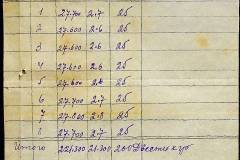 1 27.700 2.7 25
2 27.600 2.6 25
3 27.600 2.6 25
4 27.600 2.6 25
5 27.600 2.6 25
6 27.700 2.7 25
7 2.7 25
8 27.700 2.7 25
Итого 221.500 21.300 200 Двести к уб